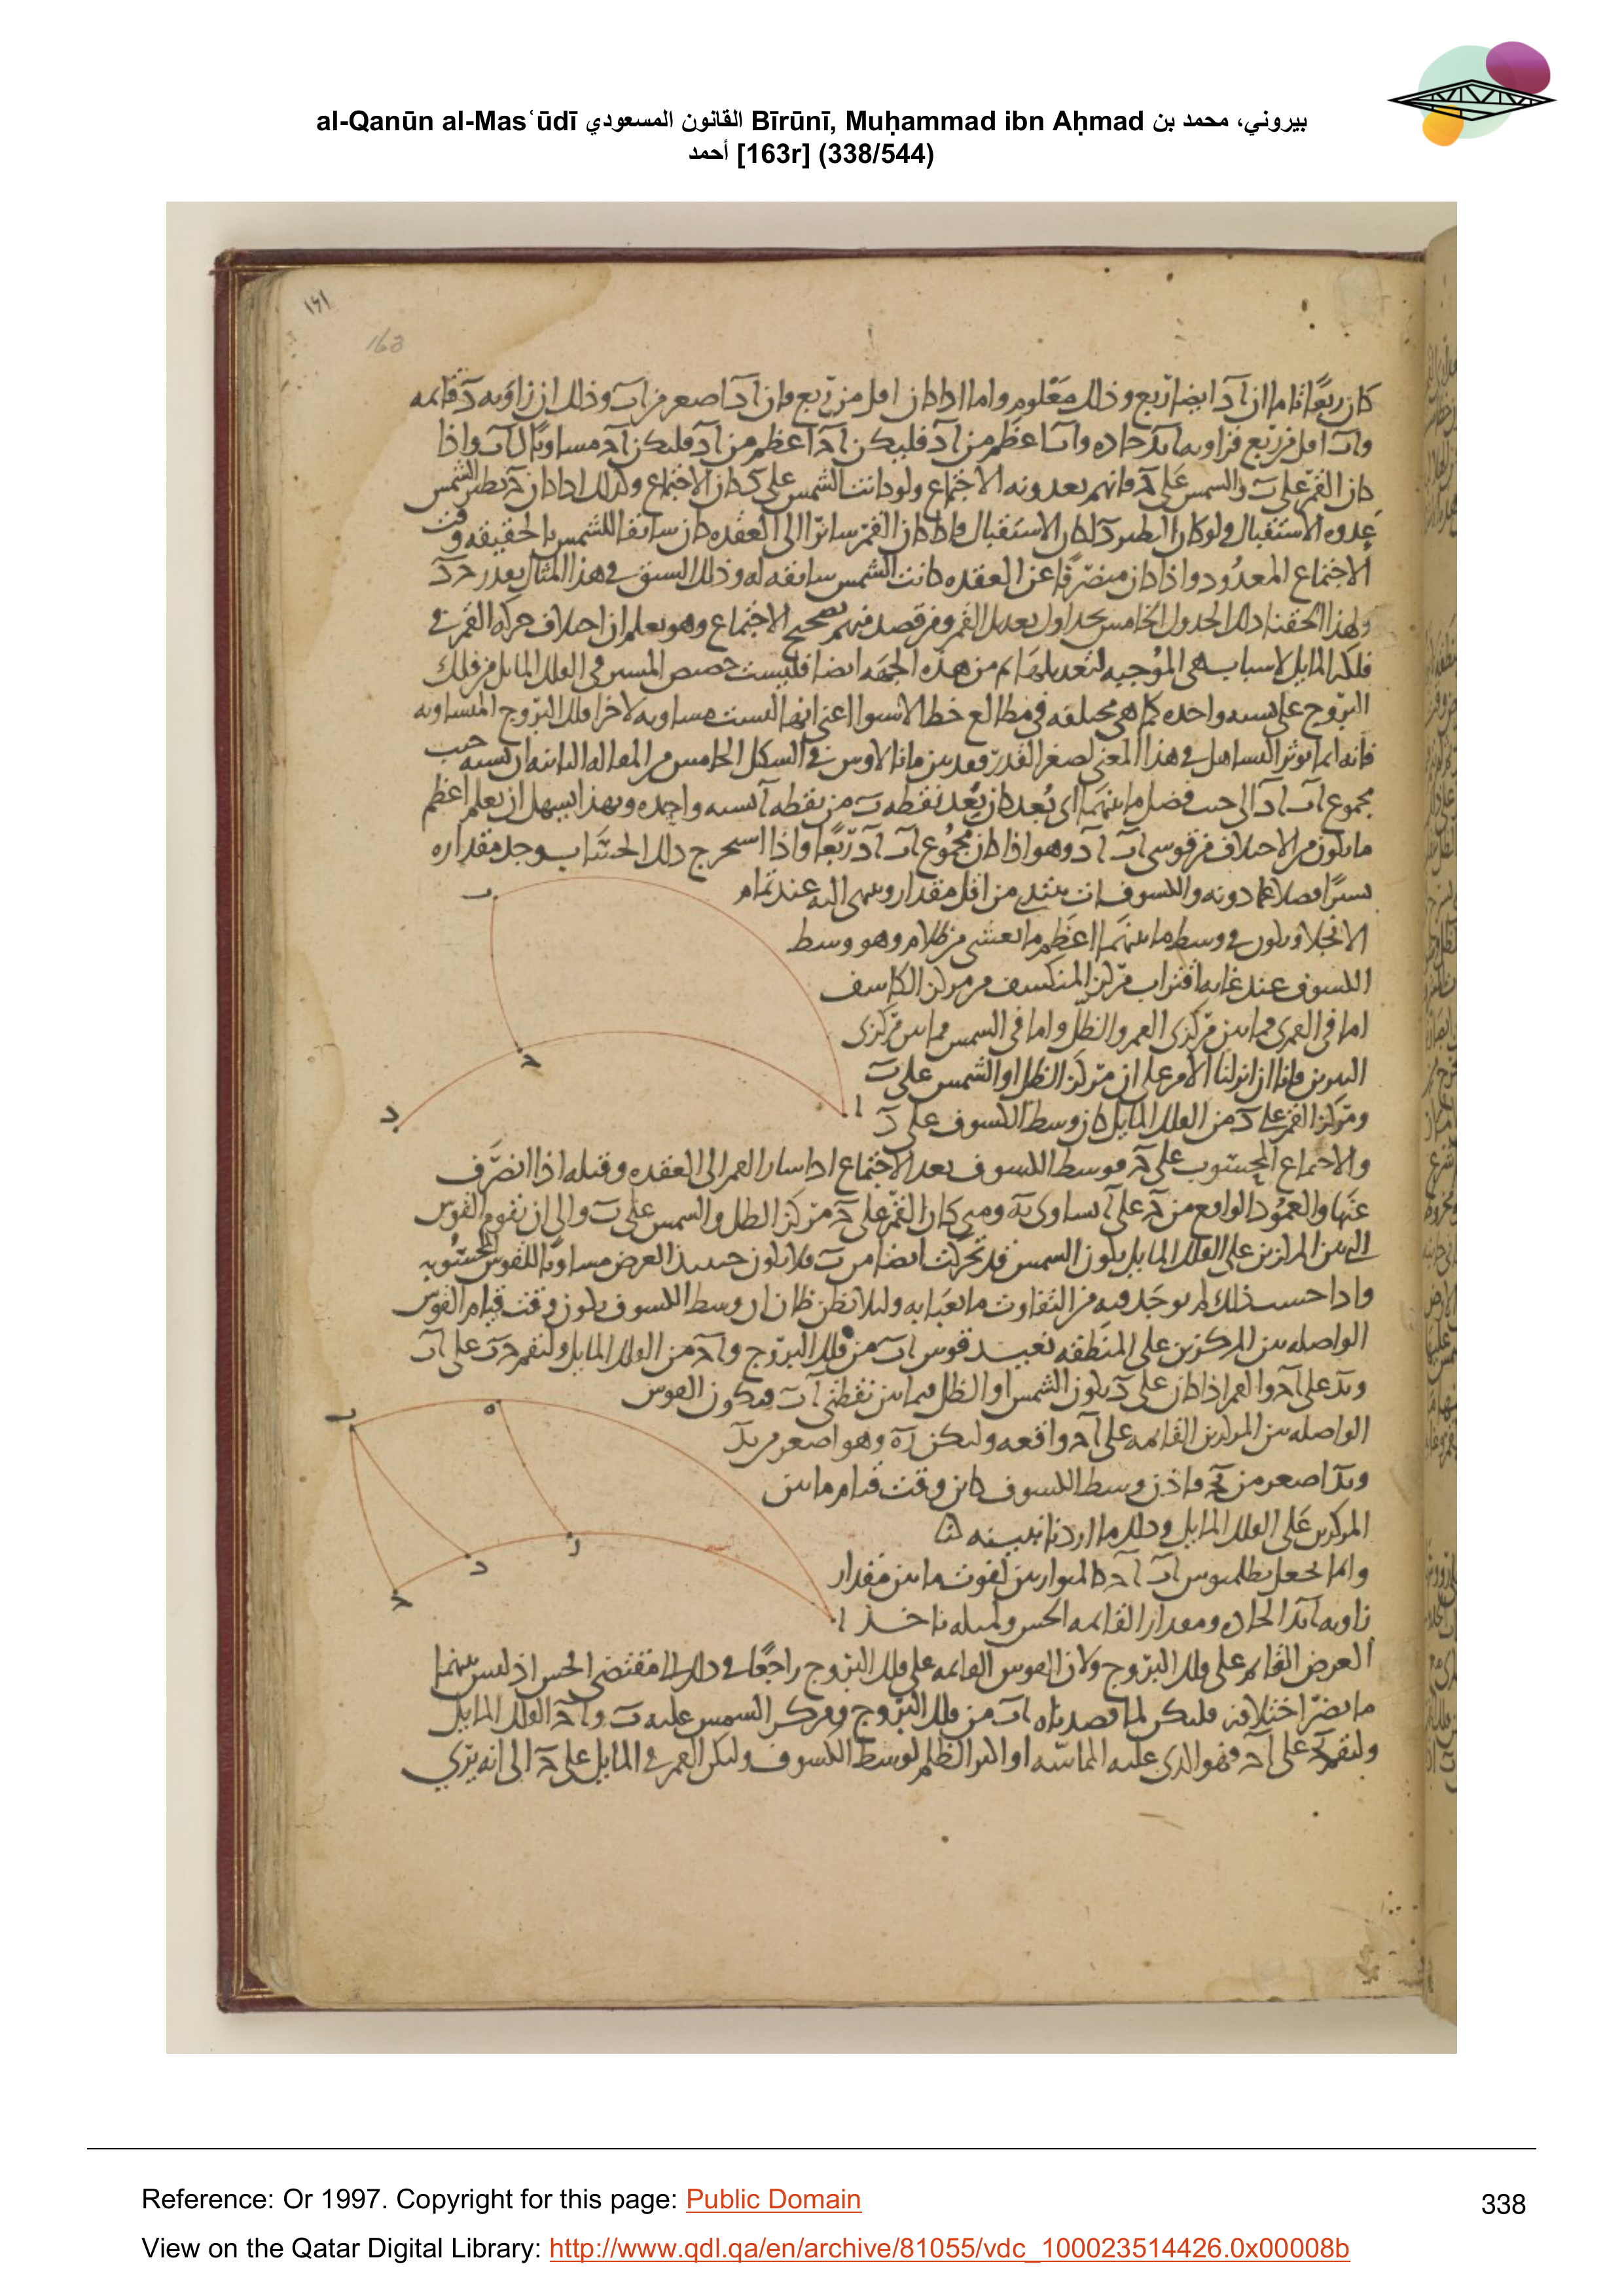 al-Qanūn al-Masʿūdī القانون المسعودي Bīrūnī, Muḥammad ibn Aḥmad بيروني، محمد بن
أحمد [163r] (338/544)
١٤١
163
كان ربعًا تاما فان آد ايضا ربع وذلك معلوم واما اذا كان اقل من ربع فان آد اصغر من اب وذلك ان زاويه د قائمه
واب اقل من ربع فزاويه ابد حاده واب اعظم من آد فليكن آح اعظم من آد فليكن آح مساويًا لاب واذا
كان القمر على والشمس على فانهم يعدونه الاجتماع ولو كانت الشمس على د كان الاجتماع وكذلك اذا كان نظير الشمس
عدوه الاستقبال ولو كان النظير د لكان الاستقبال فاذا كان القمر سائرا الى العقده كان سابقا للشمس بالحقيقه وقت
الاجتماع المعدود واذا كان منصرفا عن العقده كانت الشمس سابقه له وذلك السبق في هذا المثال بقدر حد
ولهذا الحقنا ذلك الجدول الخامس بجداول تعديل القمر ومن قصد منهم تصحيح الاجتماع وهو يعلم ان اختلاف حركه القمر في
فلكه المايل لاسباب هي الموجبه لتعديلها ثم من هذه الجهه ايضا فليست حصص المسير في الفلك المايل من فلك
البروج على نسبه واحده كما هي مختلفه في مطالع خط الاستوا اعني انها ليست مساويه لاخر فلك البروج المتساويه
فانه انما يوثر التساهل في هذا المعنى لصغر القدر وقد بين مانالاوس في الشكل الخامس من المقاله الثانيه ان نسبه جيب
مجموع اب اد الى جيب فضل ما بينهما اى بعد كان بعد نقطه ب من نقطه آ نسبه واحده وبهذا يسهل ان يعلم اعظم
ما يكون من الاختلاف من قوسى اب آد وهو اذا كان مجموع اب آد ربعًا واذا استخرج ذلك الحساب وجد مقداره
يسيرًا فضلا عما دونه والكسوفات تبتدى من اقل مقدار وينتهى اليه عند تمام
الانجلا ويكون في وسط ما بينهما اعظم ما يغشى من ظلام وهو وسط
الكسوف عند غايه اقتراب مركز المنكسف من مركز الكاسف
اما في القمرى فما بين مركزى القمر والظل واما في الشمس فما بين مركزى
النيرين فاذا انزلنا الامر على ان مركز الظل او الشمس على ب
ومركز القمر على د من الفلك المايل كان وسط الكسوف على د
والاجتماع المحسوب على فوسط الكسوف بعد الاجتماع اذا سار القمر الى العقده وقبله اذا انصرف
عنها والعمود الواقع من على يساوى ومتى كان القمر على مركز الظل والشمس على ب والى ان تقوم القوس
التي بين المركزين على الفلك المايل يكون الشمس قد تحركت ايضا من ب فلا يكون حينئذ العرض مساويًا للقوس المحسوبه
واذا حسب ذلك لم يوجد فيه من التفاوت ما يعبا به ولئلا يظن ظان ان وسط الكسوف يكون وقت قيام القوس
الواصله بين المركزين على المنطقه نعيد قوس اب من فلك البروج و آح من الفلك المايل ولنقم حب على آب
وبد على آح والقمر اذا كان على د يكون الشمس او الظل فيما بين نقطتى آب فيكون القوس
الواصله بين المركزين القائمه على آح واقعه وليكن زه وهو اصغر من بد
وبد اصغر من بح فاذن وسط الكسوف كائن وقت قيام ما بين
المركزين على الفلك المايل وذلك ما اردنا تبيينه
وانما يجعل بطلميوس اب آح كالمتوازيين لفوت ما بين مقدار
زاويه ابد الحاده ومقدار القائمه الحس ولمثله ناخذ
العرض القائم على فلك البروج ولان القوس القائمه على فلك البروج راجعًا في ذلك الى مقتضى الحس اذ ليس بينهما
ما يضر اختلافه فليكن لما قصدناه اب من فلك البروج ومركز الشمس عليه ب و آح الفلك المايل
ولنقم على آح فهو الذى عليه المماسه او المر الظلم لوسط الكسوف وليكن القمر في المايل على الى انه يرى
ب
ح
د
ا
ب
ه
ز
د
ح
ا
Reference: Or 1997. Copyright for this page: Public Domain
338
View on the Qatar Digital Library: http://www.qdl.qa/en/archive/81055/vdc_100023514426.0x00008b